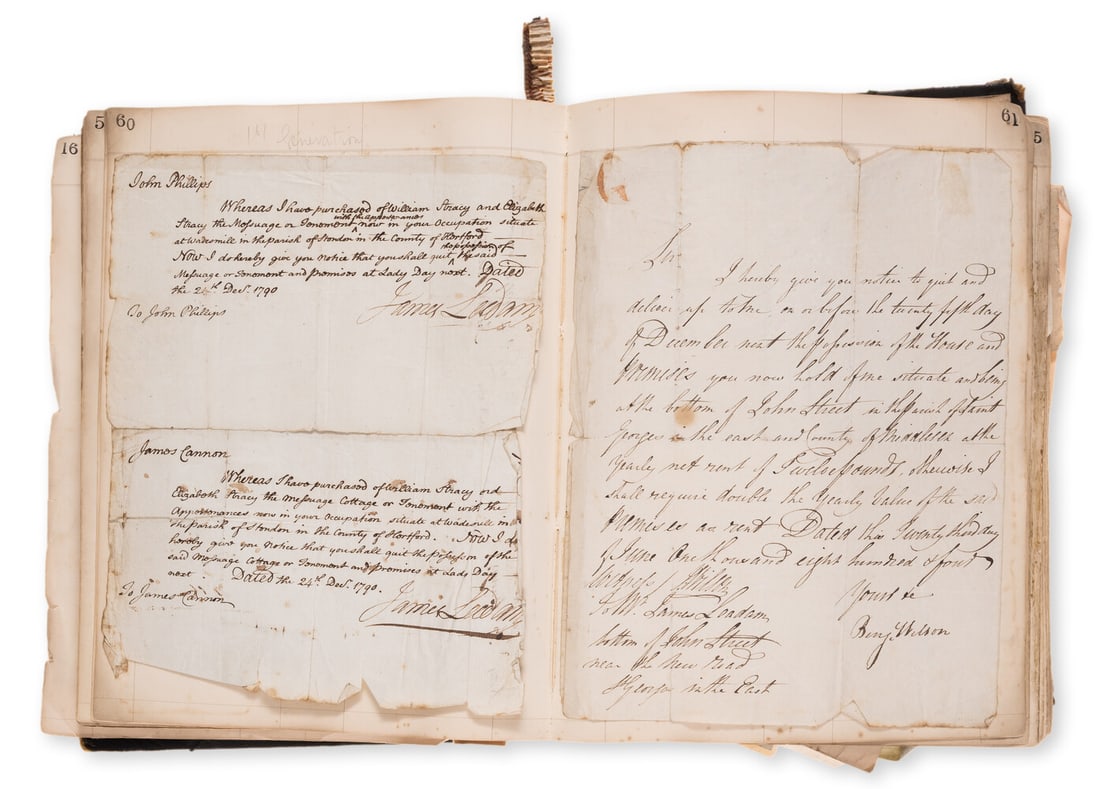 16
5
60
1st Generation
John Phillips
Whereas I have purchased of William Stracy and Elizabeth
Stracy the Messuage or Tenement with the appurtenances now in your Occupation situate
at Wadesmill in the Parish of Standon in the County of Hertford
Now I do hereby give you notice that you shall quit possession of the said
Messuage or Tenement and premises at Lady Day next. Dated
the 24th Decr. 1790
James Leadam
To John Phillips
James Cannon
Whereas I have purchased of William Stracy and
Elizabeth Stracy the Messuage Cottage or Tenement with the
Appurtenances now in your Occupation situate at Wadesmill in
the parish of Standon in the County of Hertford. Now I do
hereby give you Notice that you shall quit the possession of the
said Messuage Cottage or Tenement and premises at Lady Day
next. Dated the 24th Decr. 1790.
To James Cannon
James Leadam
61
5
Sir
I hereby give you notice to quit and
deliver up to me on or before the twenty fifth day
of December next the possession of the House and
premises you now hold of me situate and being
at the bottom of John Street in the parish of Saint
Georges in the east and County of Middlesex at the
Yearly net rent of Twelve pounds otherwise I
shall require double the Yearly Value of the said
premises as rent Dated this Twenty third day
of June One thousand eight hundred & four
Witness
Yours &c
To Mr. James Leadam
Benj. Wilson
bottom of John Street
near the New road
St Georges in the East